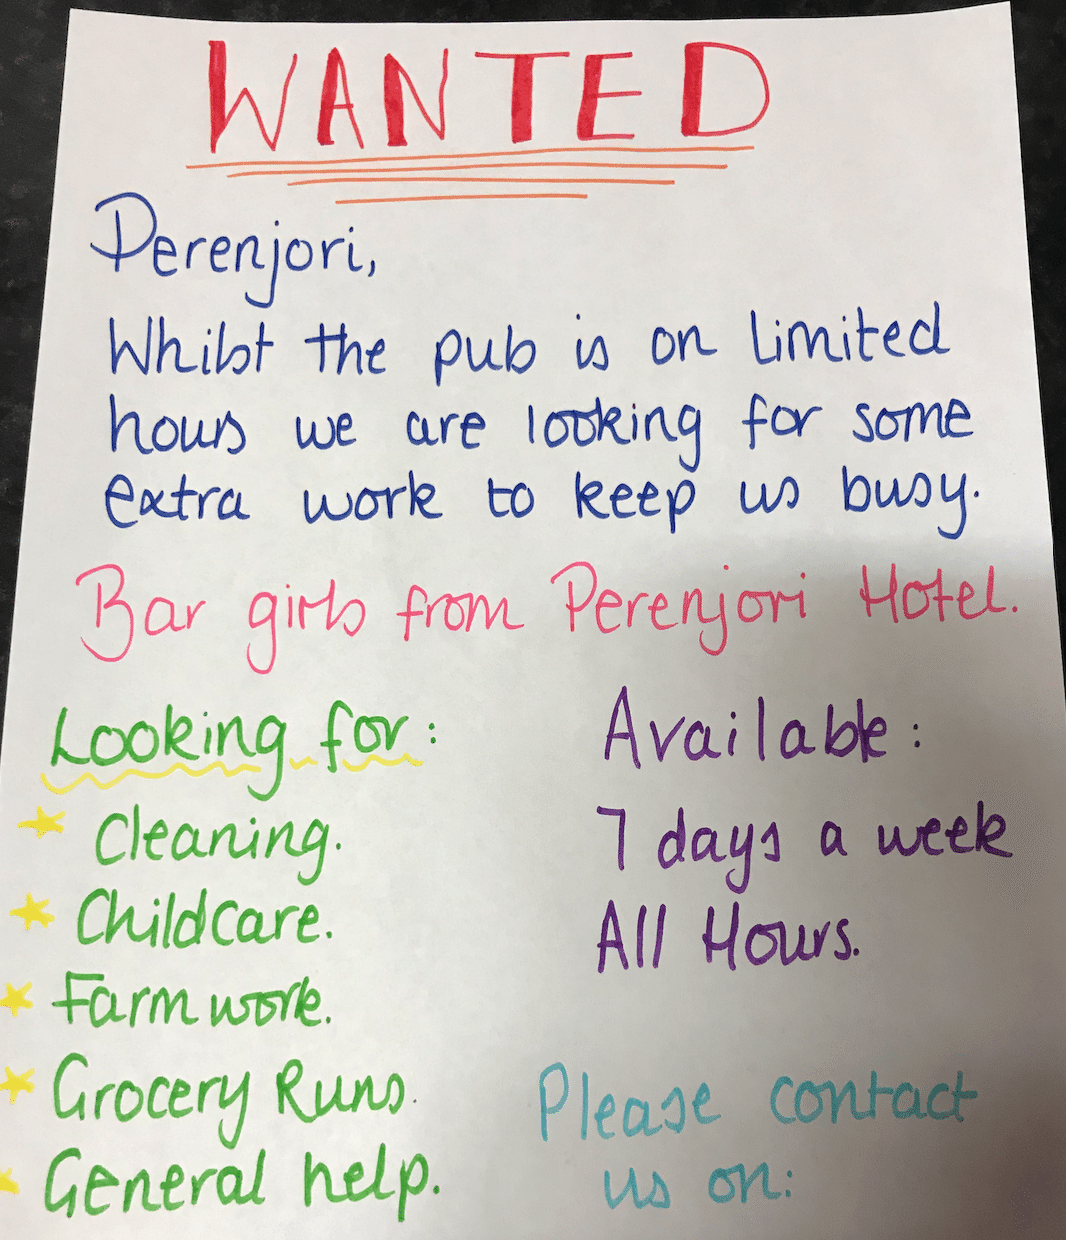 WANTED
Perenjori,
Whilst the pub is on limited
hours we are looking for some
extra work to keep us busy.
Bar girls from Perenjori Hotel.
Looking for:
Cleaning.
Childcare.
Farm work.
Grocery Runs.
General help.
Available:
7 days a week
All Hours.
Please contact
us on: